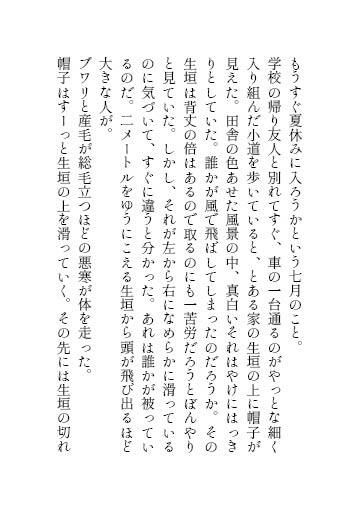 もうすぐ夏休みに入ろうかという七月のこと。
学校の帰り友人と別れてすぐ、車の一台通るのがやっとな細く
入り組んだ小道を歩いていると、とある家の生垣の上に帽子が
見えた。田舎の色あせた風景の中、真白いそれはやけにはっき
りとしていた。誰かが風で飛ばしてしまったのだろうか。その
生垣は背丈の倍はあるので取るのにも一苦労だろうとぼんやり
と見ていた。しかし、それが左から右になめらかに滑っている
のに気づいて、すぐに違うと分かった。あれは誰かが被ってい
るのだ。二メートルをゆうにこえる生垣から頭が飛び出るほど
大きな人が。
ブワリと産毛が総毛立つほどの悪寒が体を走った。
帽子はすーっと生垣の上を滑っていく。その先には生垣の切れ